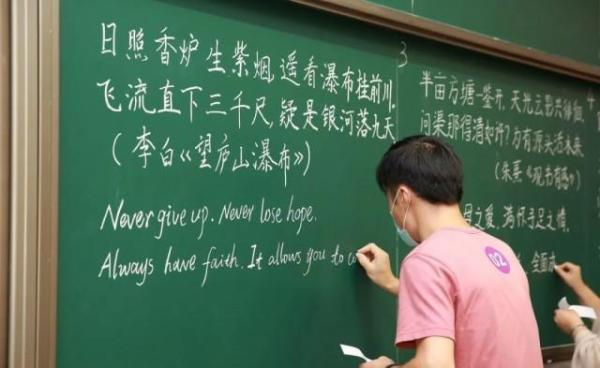 日照香炉生紫烟,遥看瀑布挂前川.
飞流直下三千尺,疑是银河落九天
(李白《望庐山瀑布》)
Never give up. Never lose hope.
Always have faith. It allows you to co
3
半亩方塘一鉴开,天光云影共徘徊.
问渠那得清如许?为有源头活水来
(朱熹《观书有感》)
之爱,满怀手足之情,
全面
02